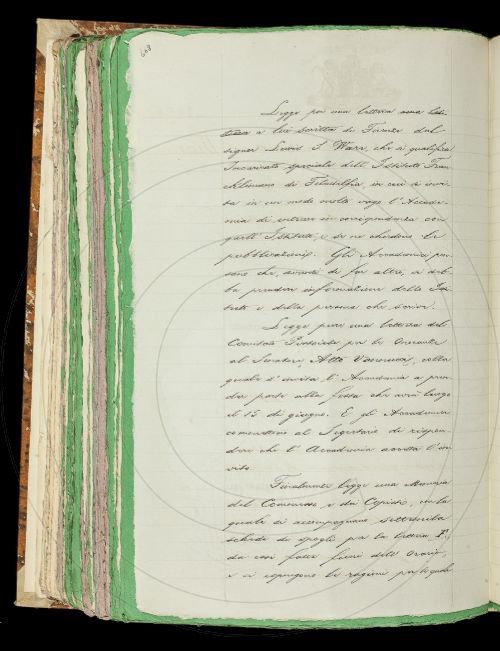 608
Legge poi una lettera una let-
tera a lui scritta di Firenze dal
signor Lewis S. Ware, che si qualifica
Incaricato speciale dell'Istituto Fran-
kliniano di Filadelfia in cui si invi-
ta in un modo molto vago l'Accade-
mia di entrare in corrispondenza con
quell'Istituto, e se ne chiedono le
pubblicazioni. Gli Accademici pen-
sano che, avanti di far altro, si deb-
ba prendere informazione dello Isti-
tuto e della persona che scrive.
Legge pure una lettera del
Comitato per le Onoranze
al Senatore Atto Vannucci, colla
quale s'invita l'Accademia a pren-
der parte alla festa che avrà luogo
il 15 di giugno. E gli Accademici
commettono al Segretario di rispon-
dere che l'Accademia accetta l'in-
vito.
Finalmente legge una Memoria
del Comm. e del con la
quale si accompagnano settecento
schede di spogli per la lettera P.
da essi fatte fuori dell'orario,
e si espongono le ragioni per le quali